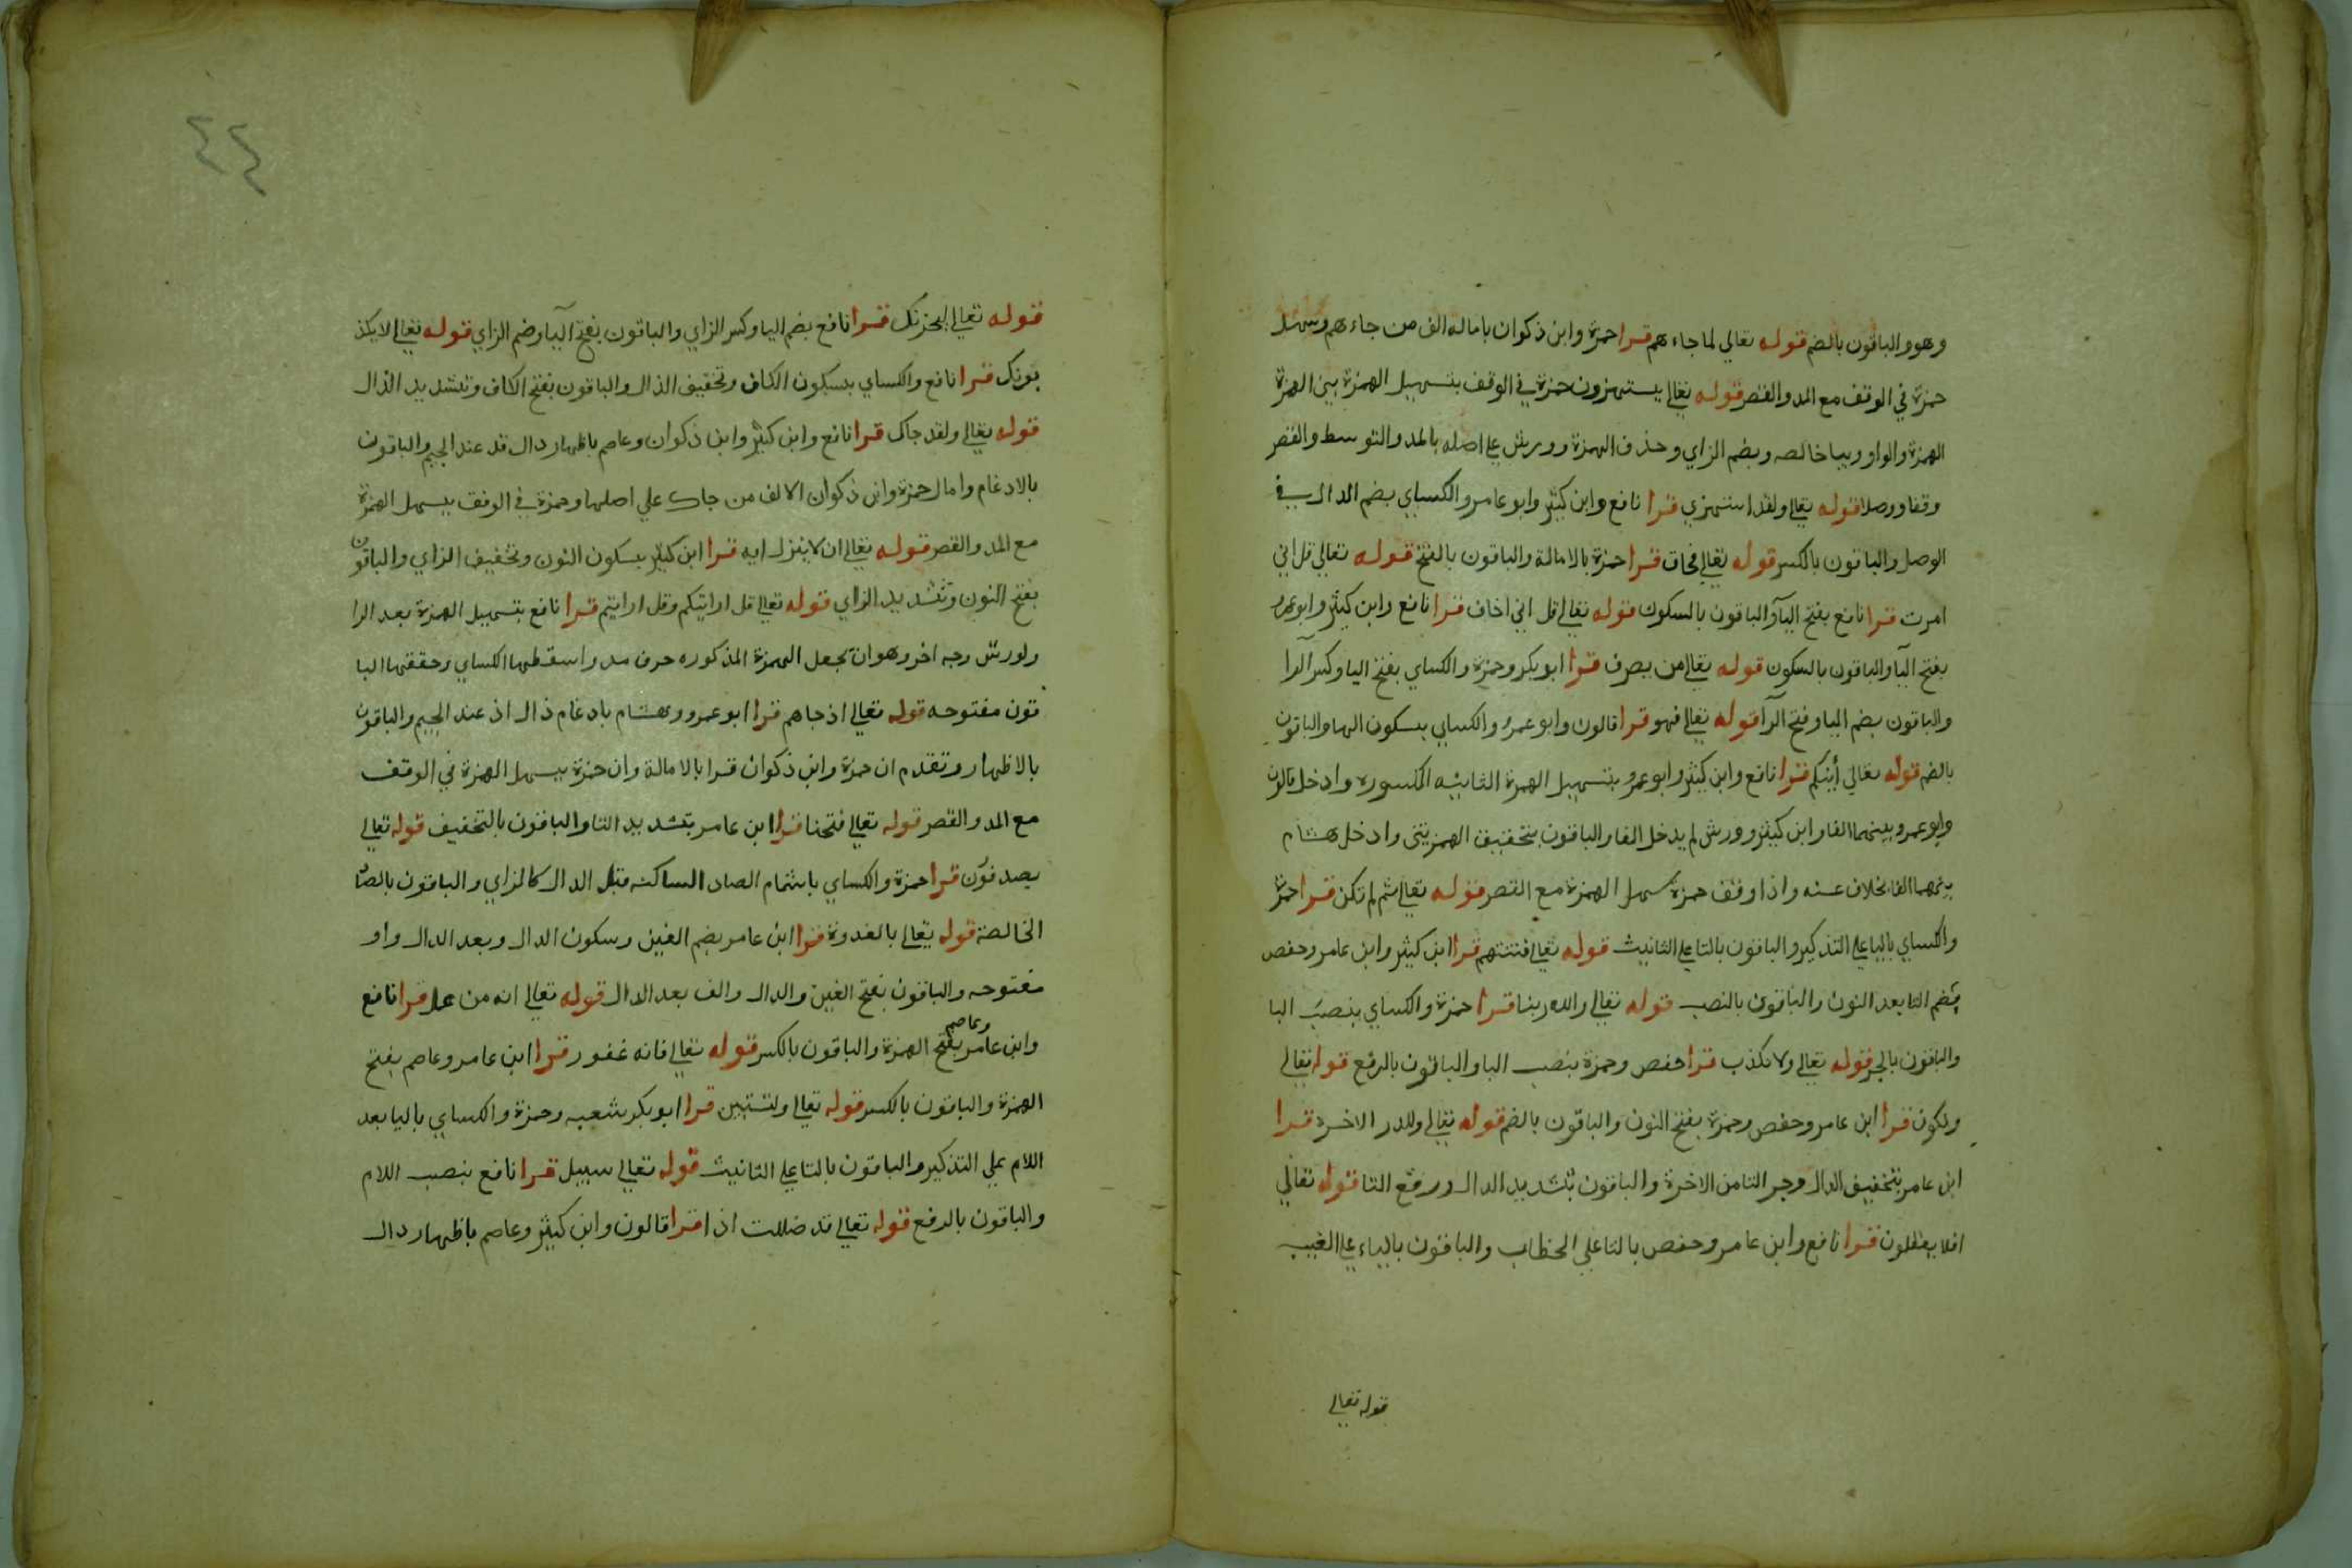 وهو والباقون بالضم قوله تعالي لما جاءهم قرا حمزة وابن ذكوان بامالة الف من جاءهم وسهل
حمزة في الوقف مع المد والقصر قوله تعالي يستهزون حمزة في الوقف بتسهيل الهمزة بين الهمزة
الهمزة والواو وبيا خالصه وبضم الزاي وحذف الهمزة وورش علي اصله بالمد والتوسط والقصر
وقفا ووصلا قوله تعالي ولقد استهزي قرا نافع وابن كثير وابو عامر والكساي بضم الدال في
الوصل والباقون بالكسر قوله تعالي فحاق قرا حمزة بالامالة والباقون بالفتح قوله تعالي قل اني
امرت قرا نافع بفتح اليآ والباقون بالسكون قوله تعالي قل اني اخاف قرا نافع وابن كثير وابو عمرو
بفتح اليآ والباقون بالسكون قوله تعالي من يصرف قرا ابو بكر وحمزة والكساي بفتح اليا وكسر الرآ
والباقون بضم اليا وفتح الرآ قوله تعالي فهو قرا قالون وابو عمرو والكساي بسكون الها والباقون
بالضم قوله تعالي أينكم قرا نافع وابن كثير وابو عمرو بتسهيل الهمزة الثانيه المكسوره وادخل قالون
وابو عمرو بينهما الفا وابن كثير وورش لم يدخل الفا والباقون بتحقيق الهمزتين وادخل هشام
بينهما الفا بخلاف عنه واذا وقف حمزة سهل الهمزة مع القصر قوله تعالي ثم لم تكن قرا حمزة
والكساي باليا علي التذكير والباقون بالتا علي التانيث قوله تعالي فتنتهم قرا ابن كثير وابن عامر وحفص
بضم التا بعد النون والباقون بالنصب قوله تعالي والله ربنا قرا حمزة والكساي بنصب البا
والباقون بالجر قوله تعالي ولا نكذب قرا حفص وحمزة بنصب البا والباقون بالرفع قوله تعالي
ونكون قرا ابن عامر وحفص وحمزة بفتح النون والباقون بالضم قوله تعالي وللدر الاخرة قرا
ابن عامر بتخفيف الدال وجر التا من الاخرة والباقون بتشديد الدال ورفع التا قوله تعالي
افلا يعقلون قرا نافع وابن عامر وحفص بالتا علي الخطاب والباقون بالياء علي الغيب
قوله تعالي
٤٤
قوله تعالي ليحزنك قرا نافع بضم اليا وكسر الزاي والباقون بفتح اليآ وضم الزاي قوله تعالي لا يكذ
بونك قرا نافع والكساي بسكون الكاف وتخفيف الذال والباقون بفتح الكاف وتشديد الذال
قوله تعالي ولقد جاك قرا نافع وابن كثير وابن ذكوان وعاصم باظهار دال قد عند الجيم والباقون
بالادغام وامال حمزة وابن ذكوان الالف من جاك علي اصلهما وحمزة في الوقف يسهل الهمزة
مع المد والقصر قوله تعالي ان لا ينزل ايه قرا ابن كثير بسكون النون وتخفيف الزاي والباقون
بفتح النون وتشديد الزاي قوله تعالي قل ارايتكم وقل ارايتم قرا نافع بتسهيل الهمزة بعد الرا
ولورش وجه اخر وهو ان تجعل الهمزة المذكوره حرف مد واسقطها الكساي وحققها البا
قون مفتوحه قوله تعالي اذ جاهم قرا ابو عمرو وهشام بادغام ذال اذ عند الجيم والباقون
بالاظهار وتقدم ان حمزة وابن ذكوان قرا بالامالة وان حمزة يسهل الهمزة في الوقف
مع المد والقصر قوله تعالي فتحنا قرا ابن عامر بتشديد التا والباقون بالتخفيف قوله تعالي
يصدفون قرا حمزة والكساي باشمام الصاد الساكنه قبل الدال كالزاي والباقون بالصاد
الخالصة قوله تعالي بالغدوة قرا ابن عامر بضم الغين وسكون الدال وبعد الدال واو
مفتوحه والباقون بفتح الغين والدال والف بعد الدال قوله تعالي انه من عمل قرا نافع
وابن عامر وعاصم بفتح الهمزة والباقون بالكسر قوله تعالي فانه غفور قرا ابن عامر وعاصم بفتح
الهمزة والباقون بالكسر قوله تعالي ولتستبين قرا ابو بكر شعبه وحمزة والكساي باليا بعد
اللام علي التذكير والباقون بالتا علي التانيث قوله تعالي سبيل قرا نافع بنصب اللام
والباقون بالرفع قوله تعالي قد ضللت اذا قرا قالون وابن كثير وعاصم باظهار دال